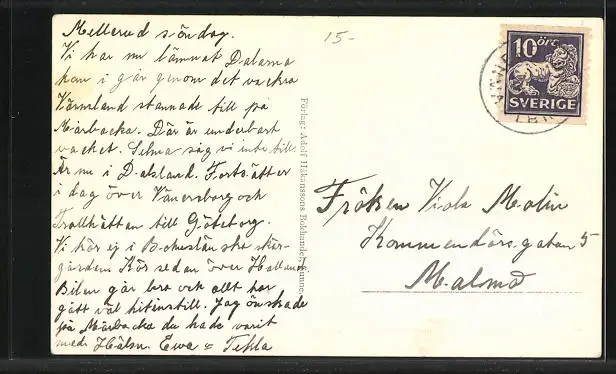 Mellerud söndag.
Vi har nu lämnat Dalarna
kom i går genom det vackra
Värmland stannade till på
Mårbacka. Där är underbart
vackert. Selma såg vi inte till.
Är nu i Dalsland. Fortsätter
i dag över Vänersborg och
Trollhättan till Göteborg.
Vi kör ej i Bohuslänska skär-
gården. Kör sedan över Halland
Bilen går bra och allt har
gått väl hitintill. Jag önskade
på Mårbacka du hade varit
med. Hälsn. Ewa & Tekla
15-
Förlag: Adolf Håkanssons Bokhandel, Sunne.
10 ÖRE
SVERIGE
Fröken Viola Molin
Kommendörsgatan 5
Malmö